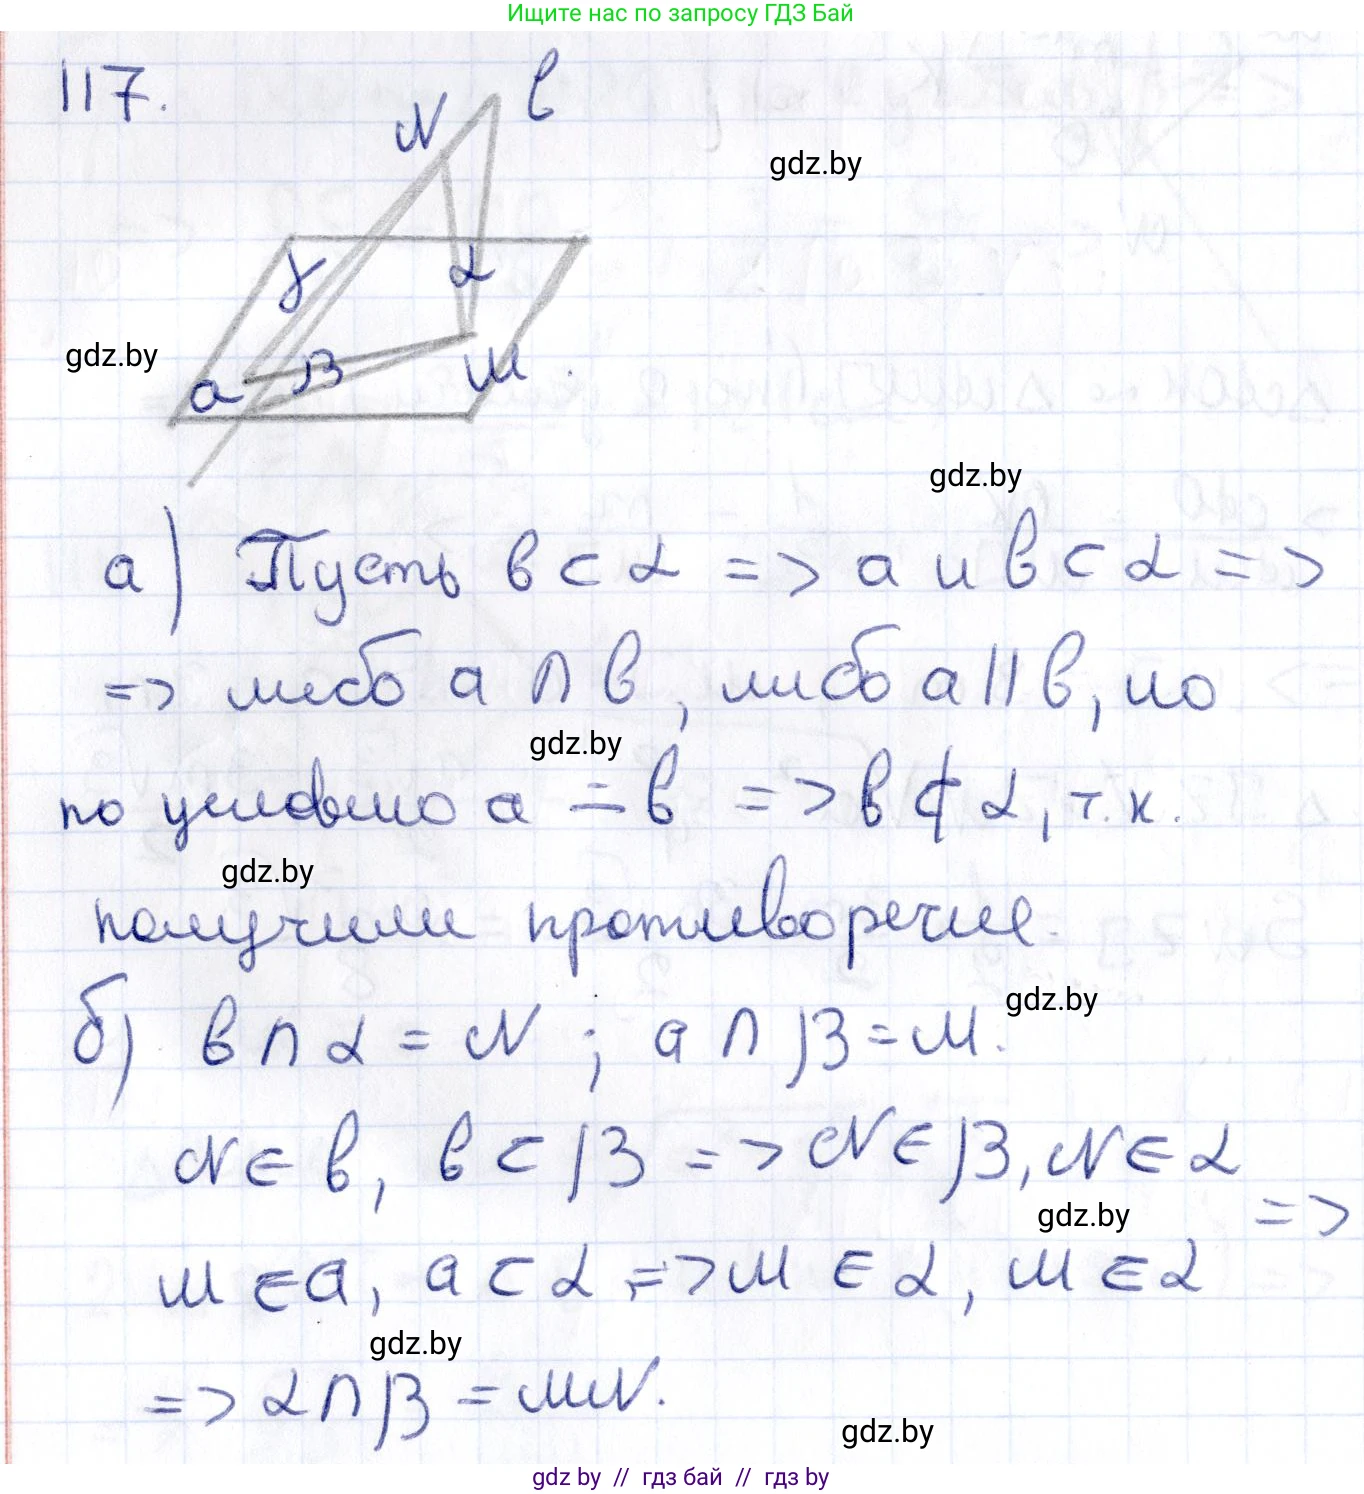 Ищите нас по запросу ГДЗ Бай
117.
N b
gdz.by
γ α
gdz.by
a β M
gdz.by
а) Пусть b ⊂ α => a и b ⊂ α =>
=> либо a ∩ b, либо a || b, но
gdz.by
по условию a ∸ b => b ⊄ α, т.к.
gdz.by
получили противоречие.
б) b ∩ α = N ; a ∩ β = M.
gdz.by
N ∈ b, b ⊂ β => N ∈ β, N ∈ α
gdz.by
=>
M ∈ a, a ⊂ α => M ∈ α, M ∈ α
gdz.by
=> α ∩ β = MN.
gdz.by
gdz by // гдз бай // гдз by